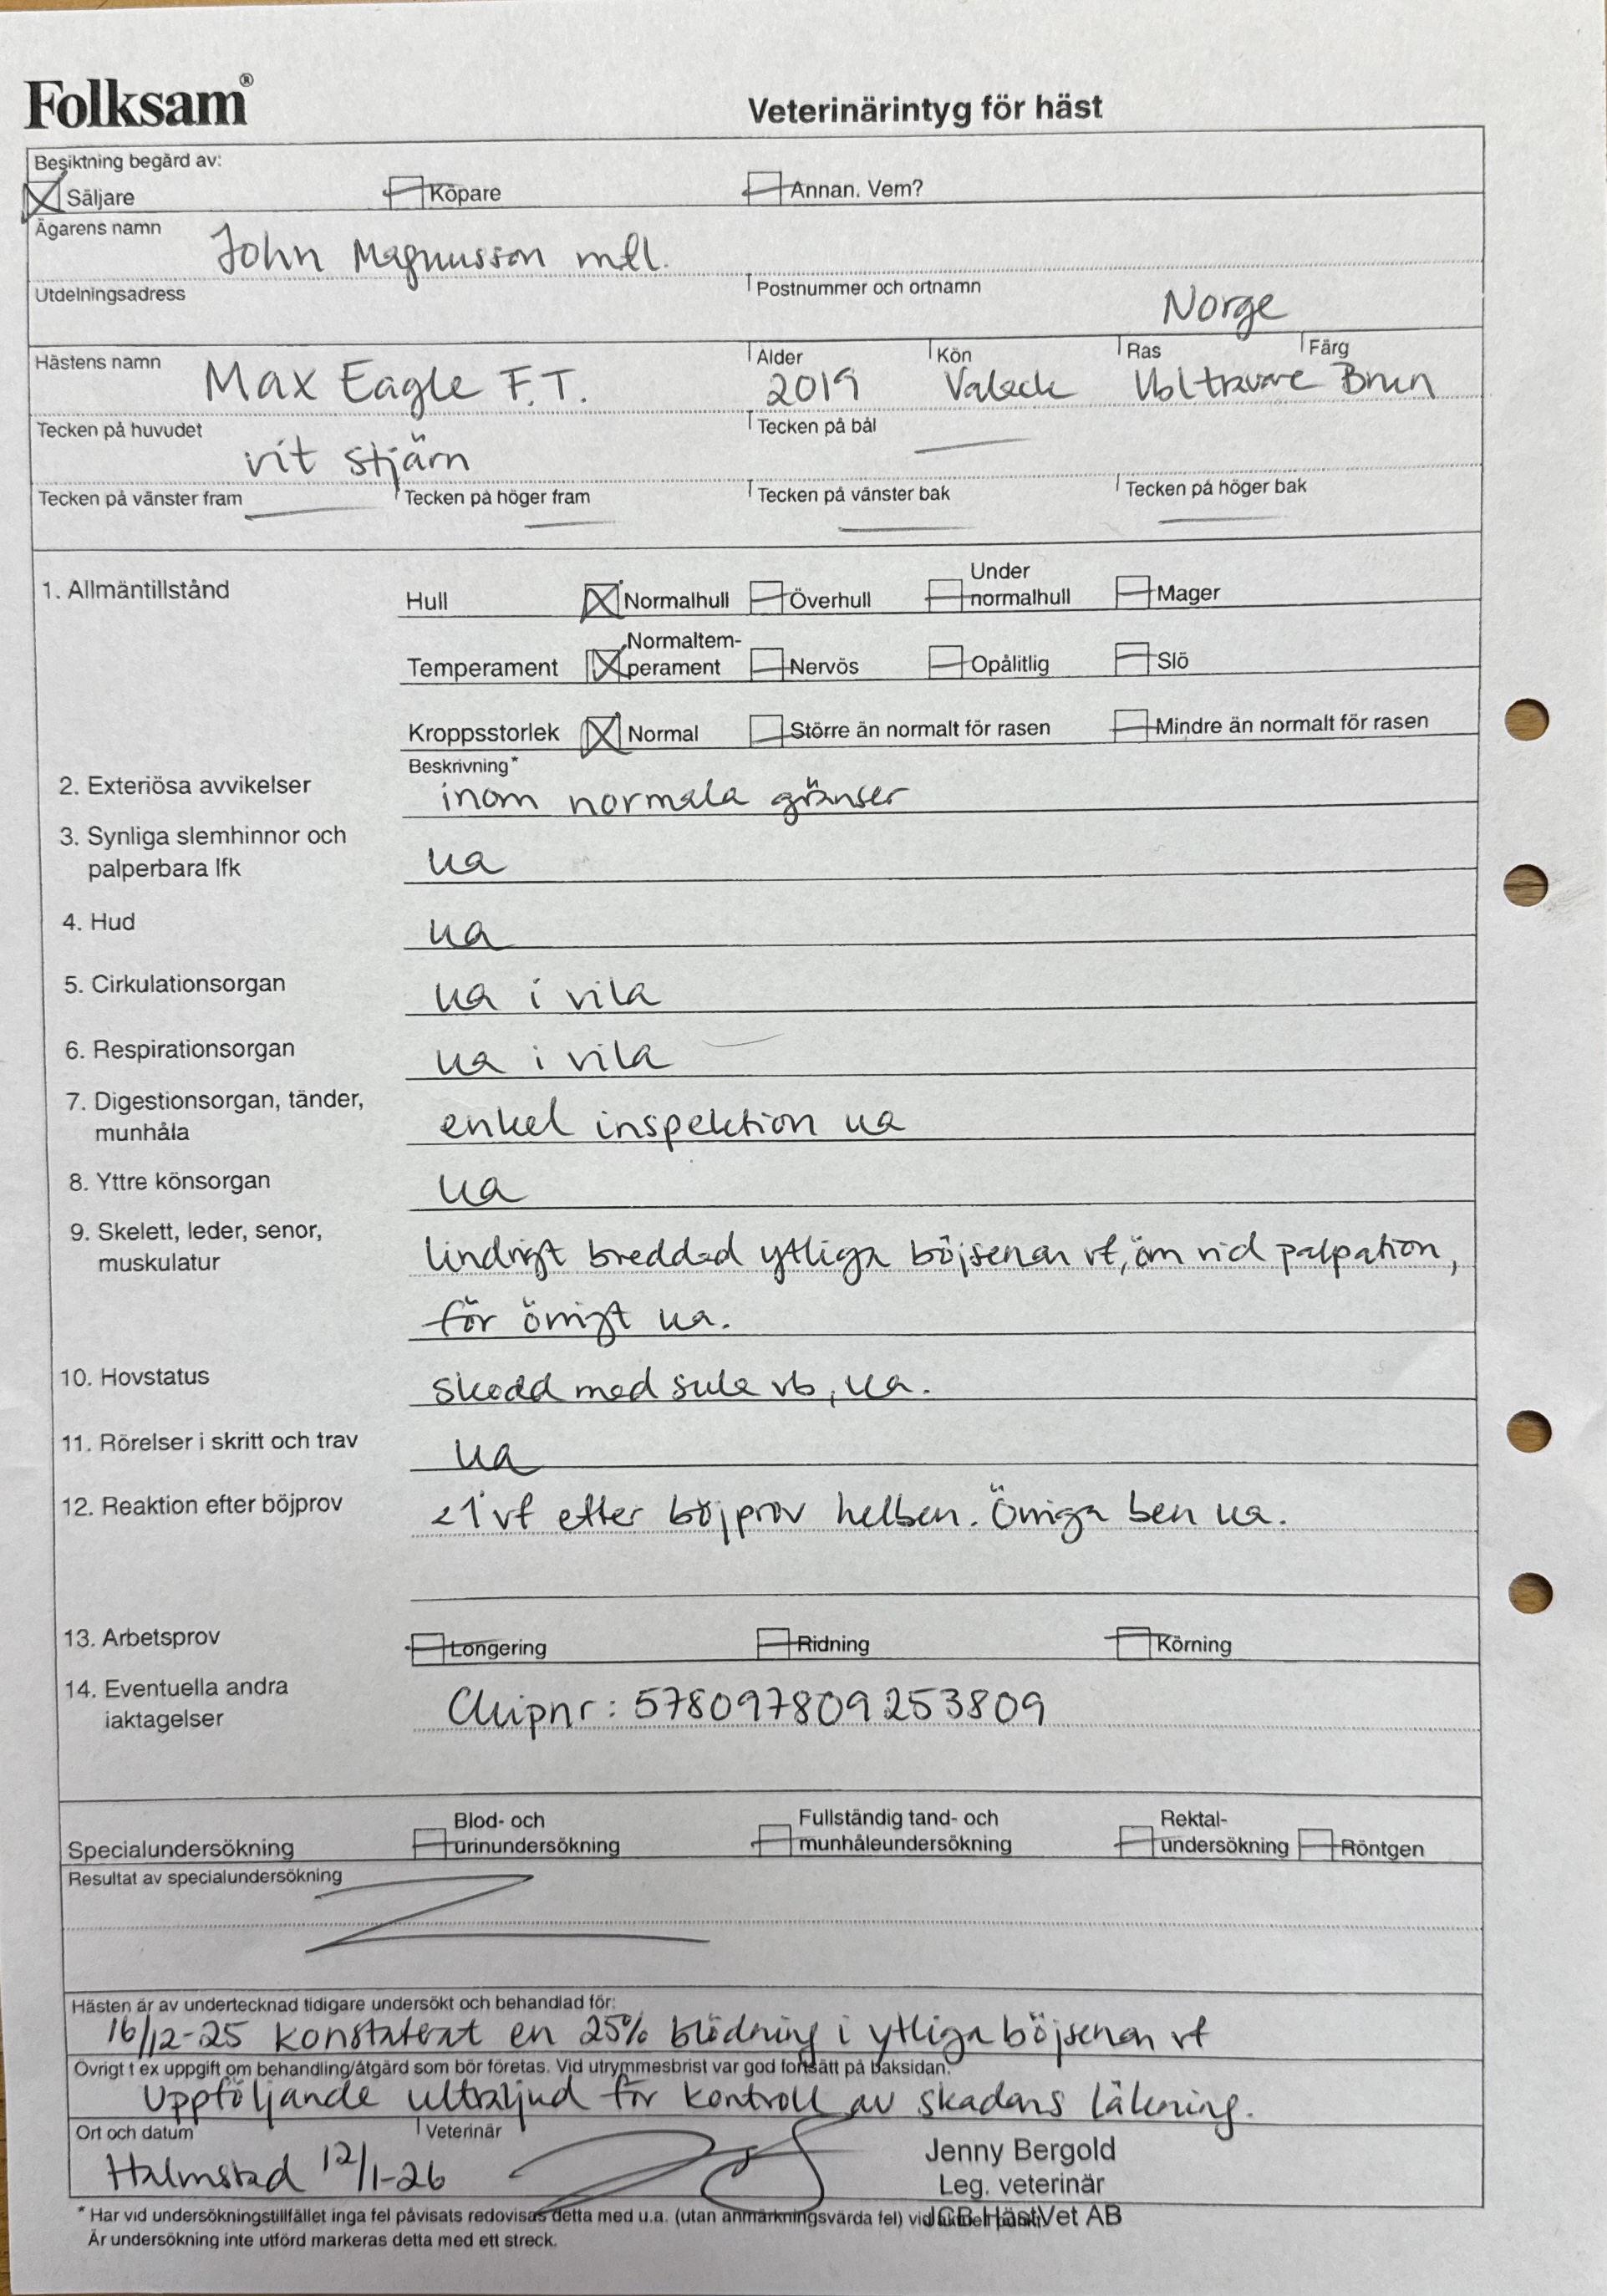 Folksam®
Veterinärintyg för häst
Besiktning begärd av:
Säljare Köpare Annan. Vem?
Ägarens namn
John Magnusson mfl.
Utdelningsadress Postnummer och ortnamn
Norge
Hästens namn Ålder Kön Ras Färg
Max Eagle F.T. 2019 Valack Vbl travare Brun
Tecken på huvudet Tecken på bål
vit stjärn
Tecken på vänster fram Tecken på höger fram Tecken på vänster bak Tecken på höger bak
1. Allmäntillstånd Hull Normalhull Överhull Under normalhull Mager
Temperament Normaltem-perament Nervös Opålitlig Slö
Kroppsstorlek Normal Större än normalt för rasen Mindre än normalt för rasen
Beskrivning*
2. Exteriösa avvikelser inom normala gränser
3. Synliga slemhinnor och
palperbara lfk ua
4. Hud ua
5. Cirkulationsorgan ua i vila
6. Respirationsorgan ua i vila
7. Digestionsorgan, tänder,
munhåla enkel inspektion ua
8. Yttre könsorgan ua
9. Skelett, leder, senor,
muskulatur lindrigt breddad ytliga böjsenan vf, öm vid palpation,
för övrigt ua.
10. Hovstatus skodd med sula vb, ua.
11. Rörelser i skritt och trav ua
12. Reaktion efter böjprov <1° vf efter böjprov helben. Övriga ben ua.
13. Arbetsprov Longering Ridning Körning
14. Eventuella andra
iaktagelser Chipnr: 578097809253809
Specialundersökning Blod- och urinundersökning Fullständig tand- och munhåleundersökning Rektal-undersökning Röntgen
Resultat av specialundersökning
Hästen är av undertecknad tidigare undersökt och behandlad för:
16/12-25 konstaterat en 25% blödning i ytliga böjsenan vf
Övrigt t ex uppgift om behandling/åtgärd som bör företas. Vid utrymmesbrist var god fortsätt på baksidan.
Uppföljande ultraljud för kontroll av skadans läkning.
Ort och datum Veterinär
Halmstad 12/1-26
Jenny Bergold
Leg. veterinär
JCB HästVet AB
* Har vid undersökningstillfället inga fel påvisats redovisas detta med u.a. (utan anmärkningsvärda fel) vid aktuell punkt.
Är undersökning inte utförd markeras detta med ett streck.